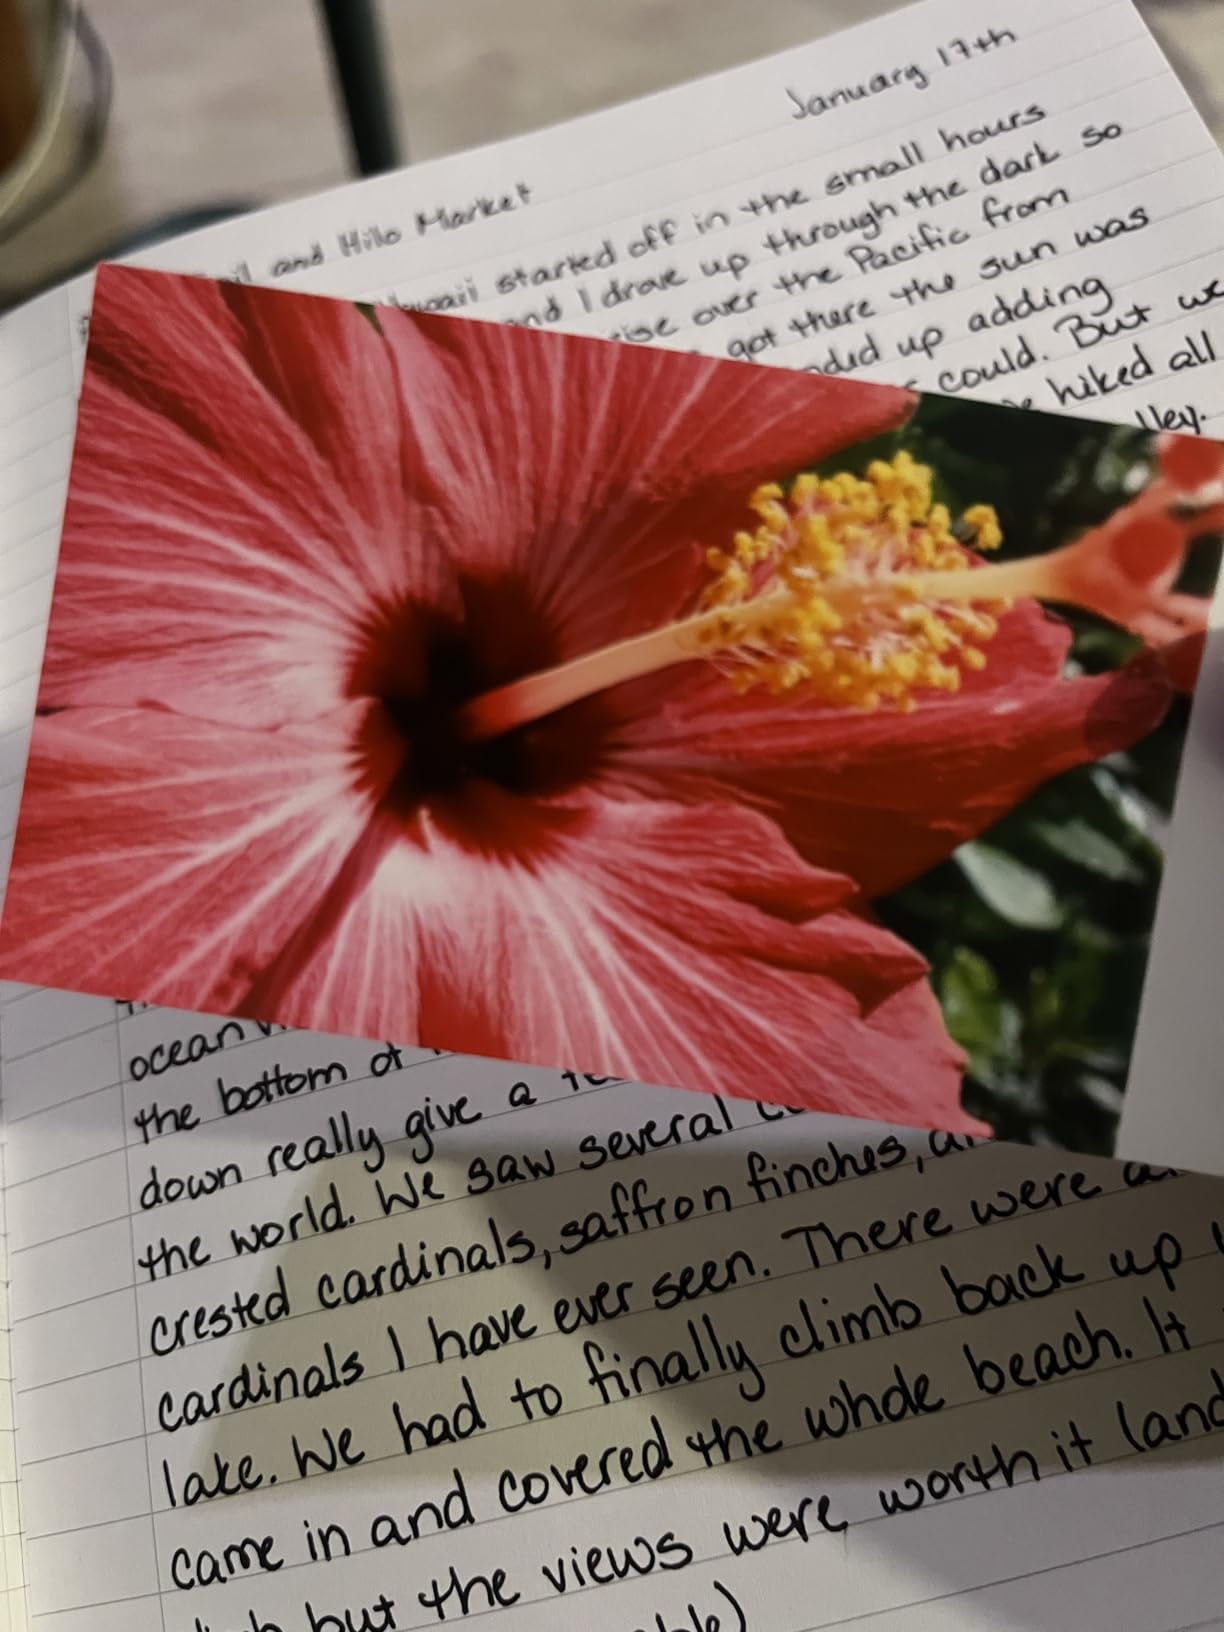 January 17th
and Hilo Market
started off in the small hours
and I drove up through the dark so
over the Pacific from
got there the sun was
up adding
could. But we
hiked all
ocean
the bottom of
down really give a
the world. We saw several
crested cardinals, saffron finches,
cardinals I have ever seen. There were
lake. We had to finally climb back up
came in and covered the whole beach. It
but the views were worth it (and